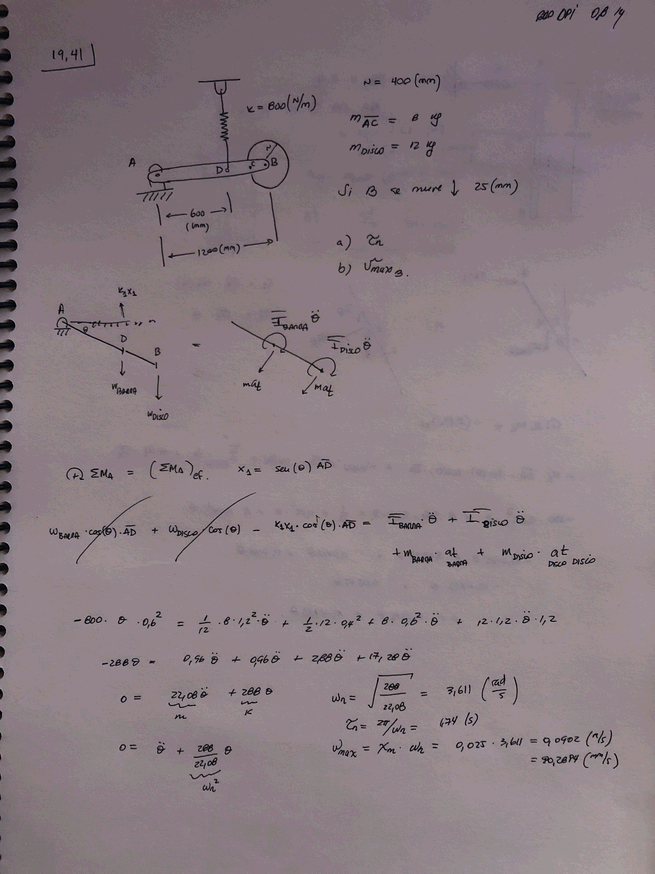 19,41
r = 400 (mm)
K = 800 (N/m)
m AC = 8 kg
m DISCO = 12 kg
A
D
C
r
B
Si B se mueve ↓ 25 (mm)
600
(mm)
1200 (mm)
a) τn
b) Vmax B.
K1x1
A
θ
D
B
W BARRA
W DISCO
=
I BARRA θ̈
I DISCO θ̈
mat
mat
ΣMA = (ΣMA)ef. x1 = sen(θ) AD
W BARRA · cos(θ) · AD + W DISCO cos(θ) - K1x1 · cos(θ) · AD = I BARRA θ̈ + I DISCO θ̈
+ m BARRA · at BARRA + m DISCO · at DISCO DISCO
-800 · θ · 0,6² = 1/12 · 8 · 1,2² · θ̈ + 1/2 · 12 · 0,4² + 8 · 0,6² · θ̈ + 12 · 1,2 · θ̈ · 1,2
-288 θ = 0,96 θ̈ + 0,96 θ̈ + 2,88 θ̈ + 17,28 θ̈
0 = 22,08 θ̈ + 288 θ
m
K
ωn = √(288/22,08) = 3,611 (rad/s)
τn = 2π/ωn = 1,74 (s)
0 = θ̈ + 288/22,08 θ
ωn²
Vmax = Xm · ωn = 0,025 · 3,611 = 0,0902 (m/s)